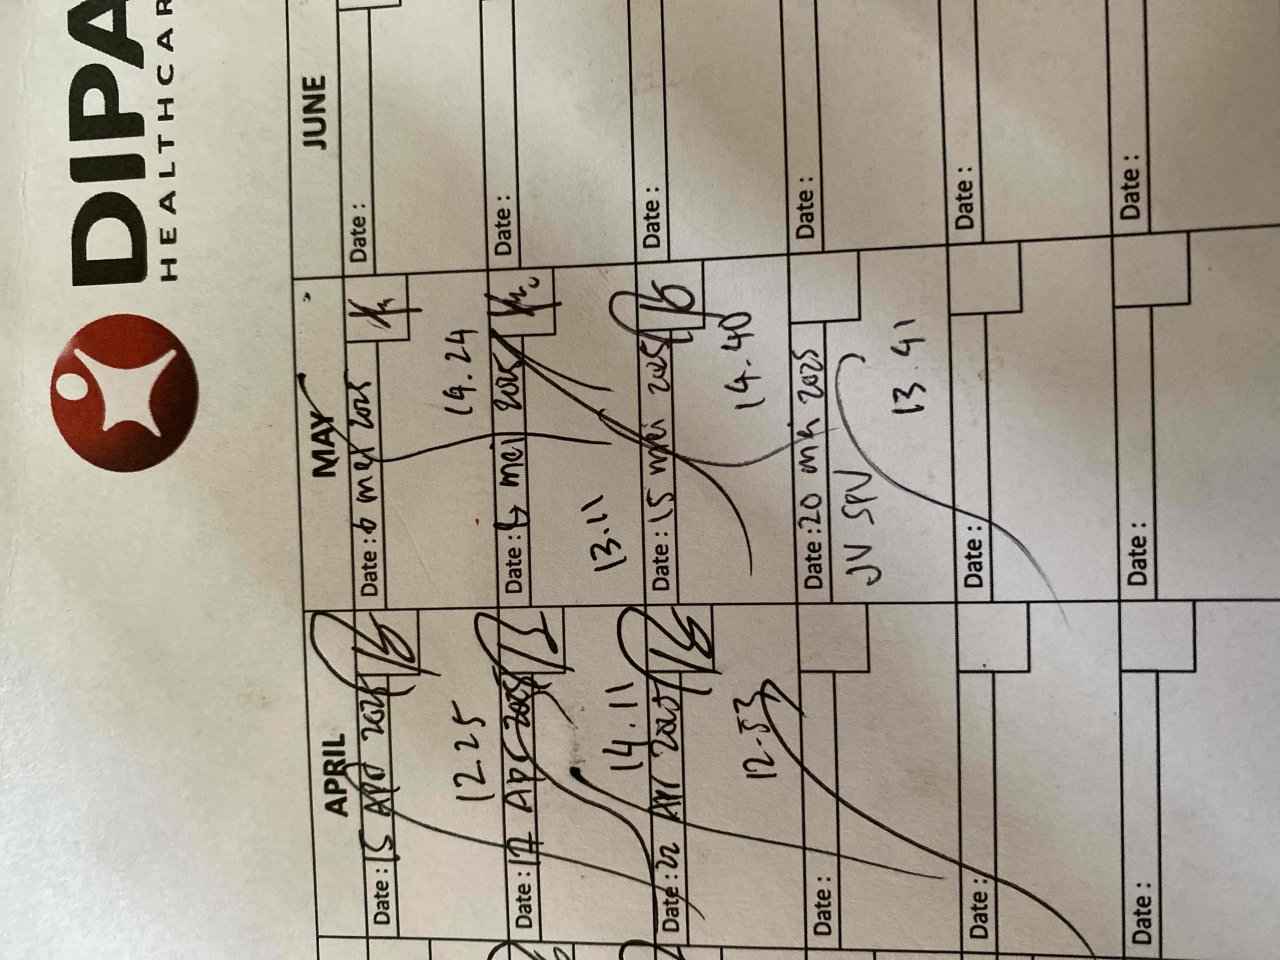 DIPA
HEALTHCAR
APRIL
Date : 15 Apr 2025
12 25
Date : 17 Apr 2025
14.11
Date : 22 Apr 2025
12.53
Date :
Date :
Date :
MAY
Date : 6 mei 2025
Date : mei 2025
13.11
Date : 15 mei 2025
14.40
Date : 20 mei 2025
JV SPV
13.41
Date :
Date :
JUNE
Date :
Date :
Date :
Date :
Date :
Date :